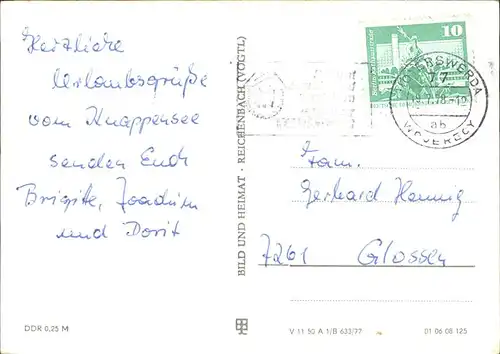 Herzliche
Urlaubsgrüße
vom Knappensee
senden Euch
Brigitte, Joachim
und Dorit
DDR 0,25 M
BILD UND HEIMAT · REICHENBACH (VOGTL)
10
HOYERSWERDA
77
WOJERECY
ab
Fam.
Gerhard Hennig
7261 Glossen
V 11 50 A 1/B 633/77
01 06 08 125